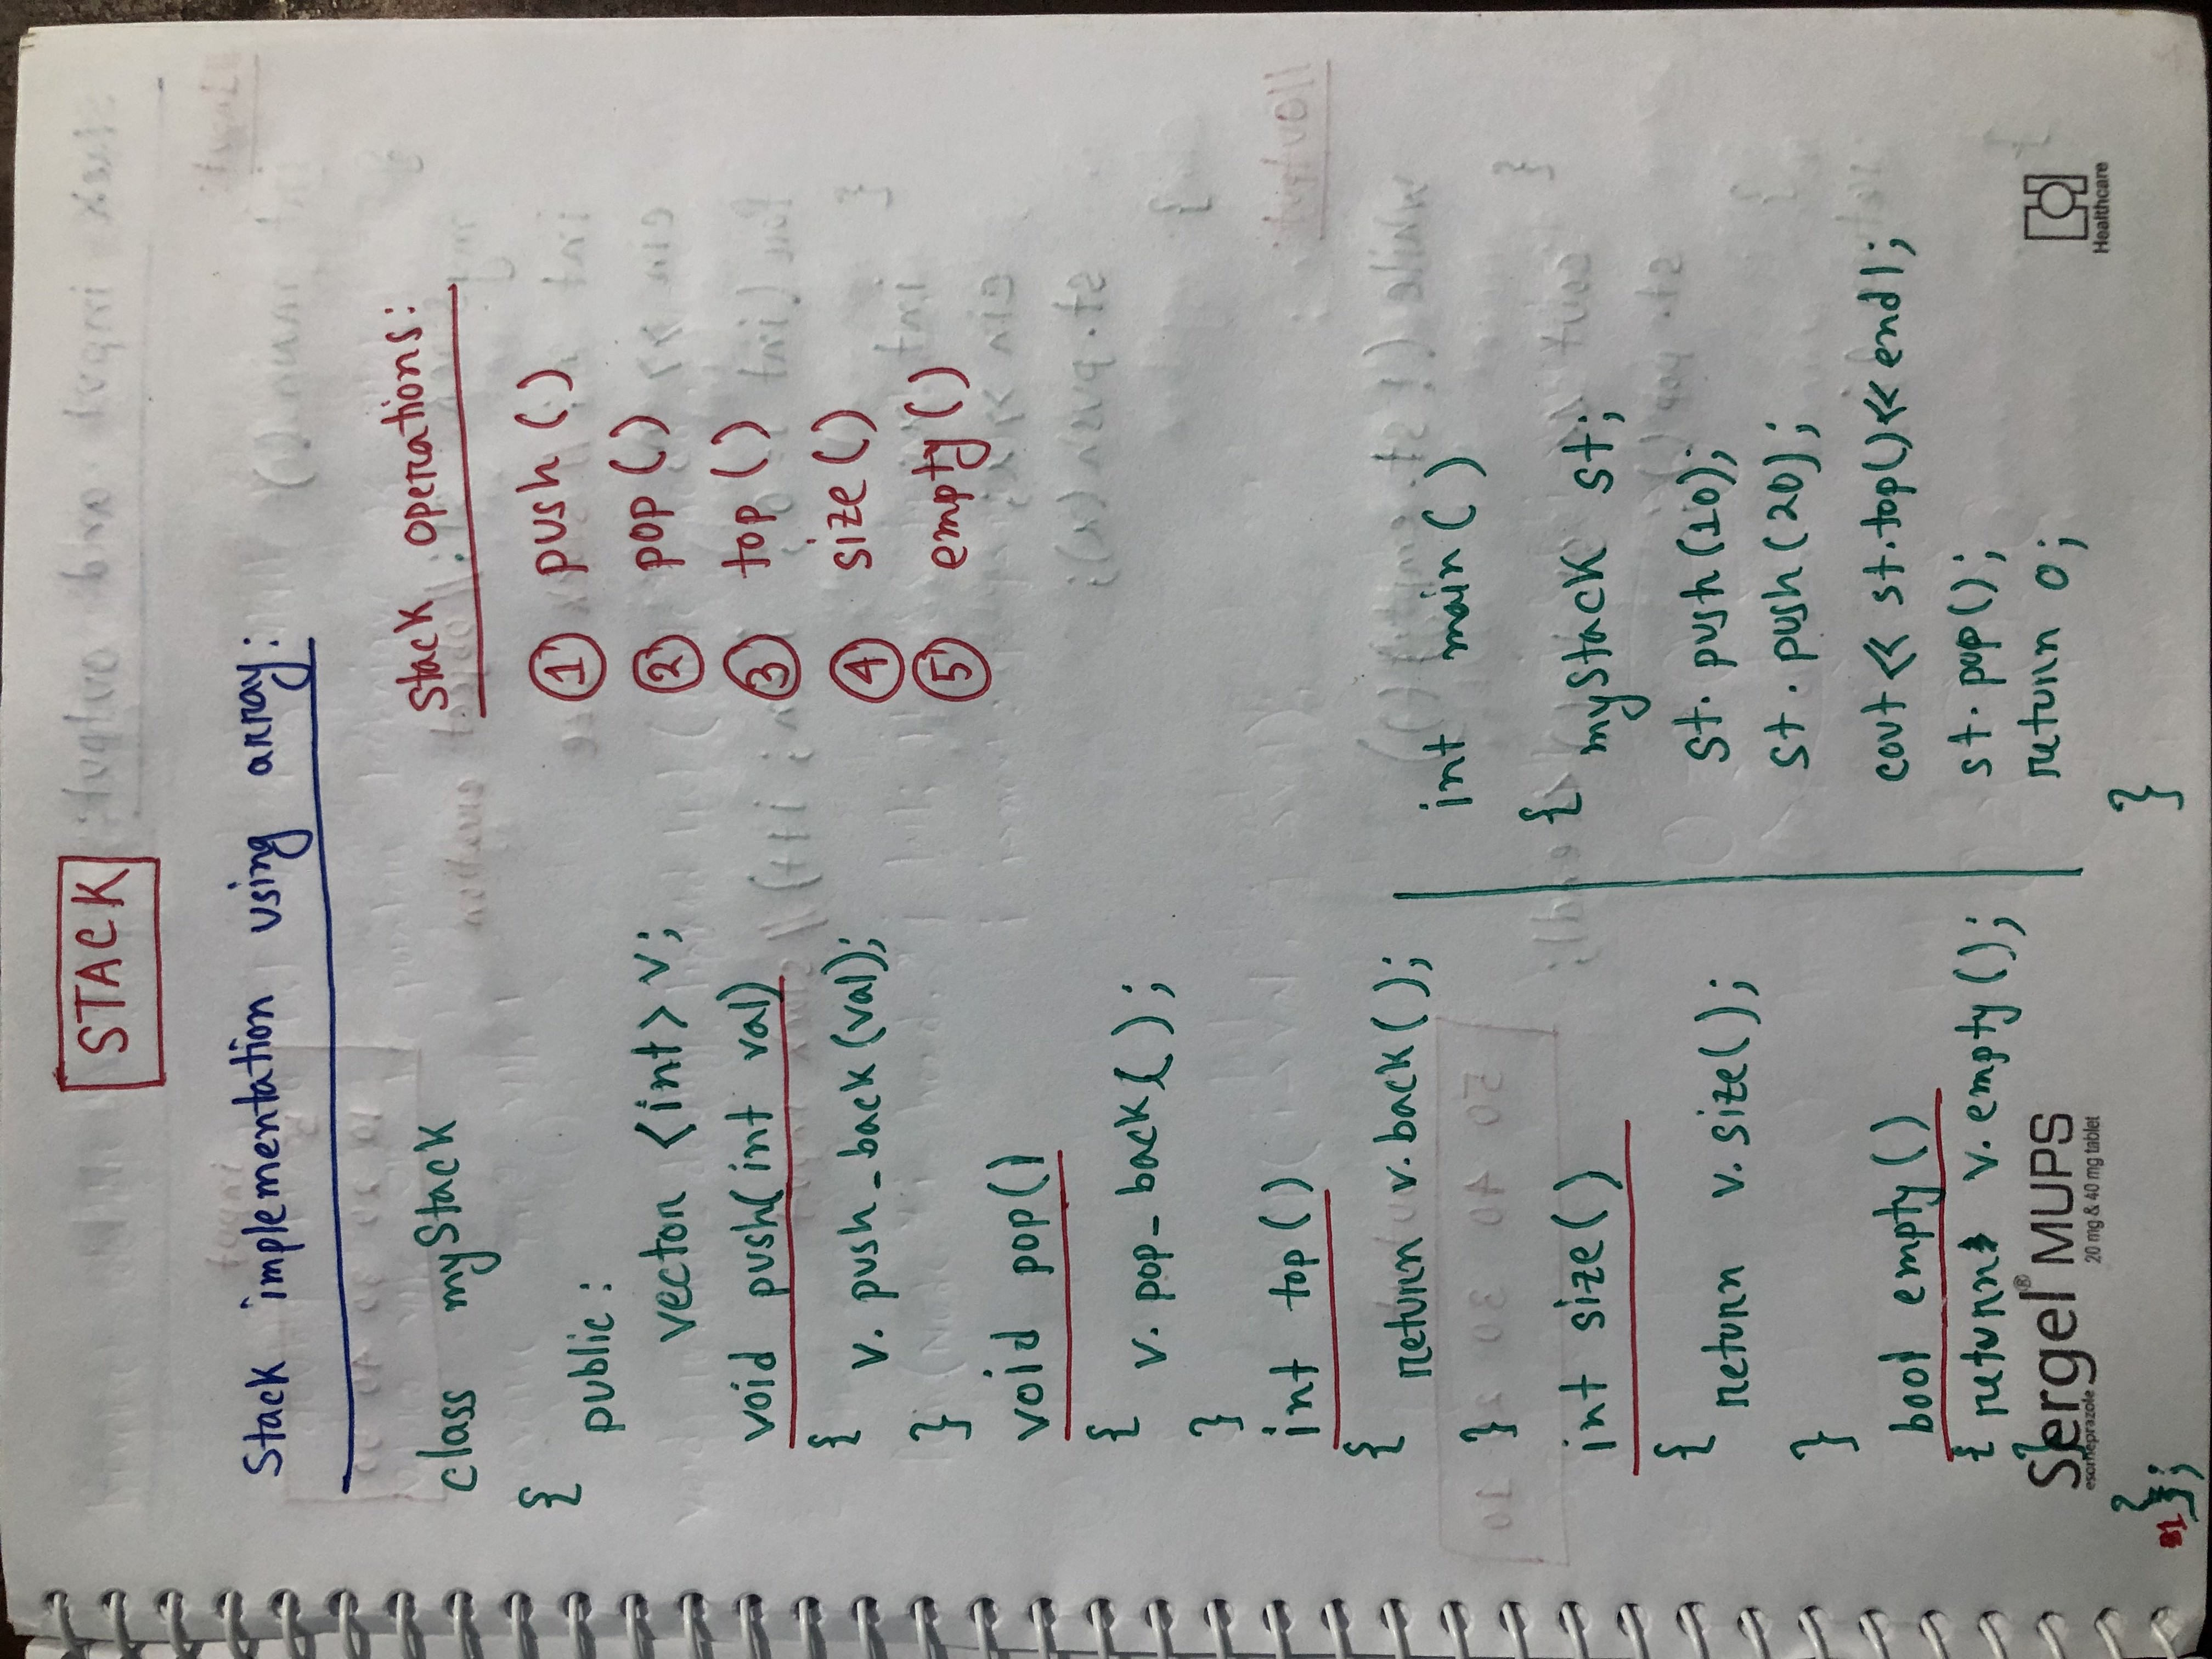 STACK
Stack implementation using array:
class myStack
{
public:
vector <int> v;
void push(int val)
{
v. push_back(val);
}
void pop()
{
v. pop_back();
}
int top()
{
return v.back();
}
int size()
{
return v.size();
}
bool empty()
{ return v.empty();
}
};
stack operations:
① push()
② pop()
③ top()
④ size()
⑤ empty()
int main()
{
myStack st;
st. push(10);
st. push(20);
cout << st.top() << endl;
st. pop();
return 0;
}
Sergel® MUPS
esomeprazole
20 mg & 40 mg tablet
Healthcare